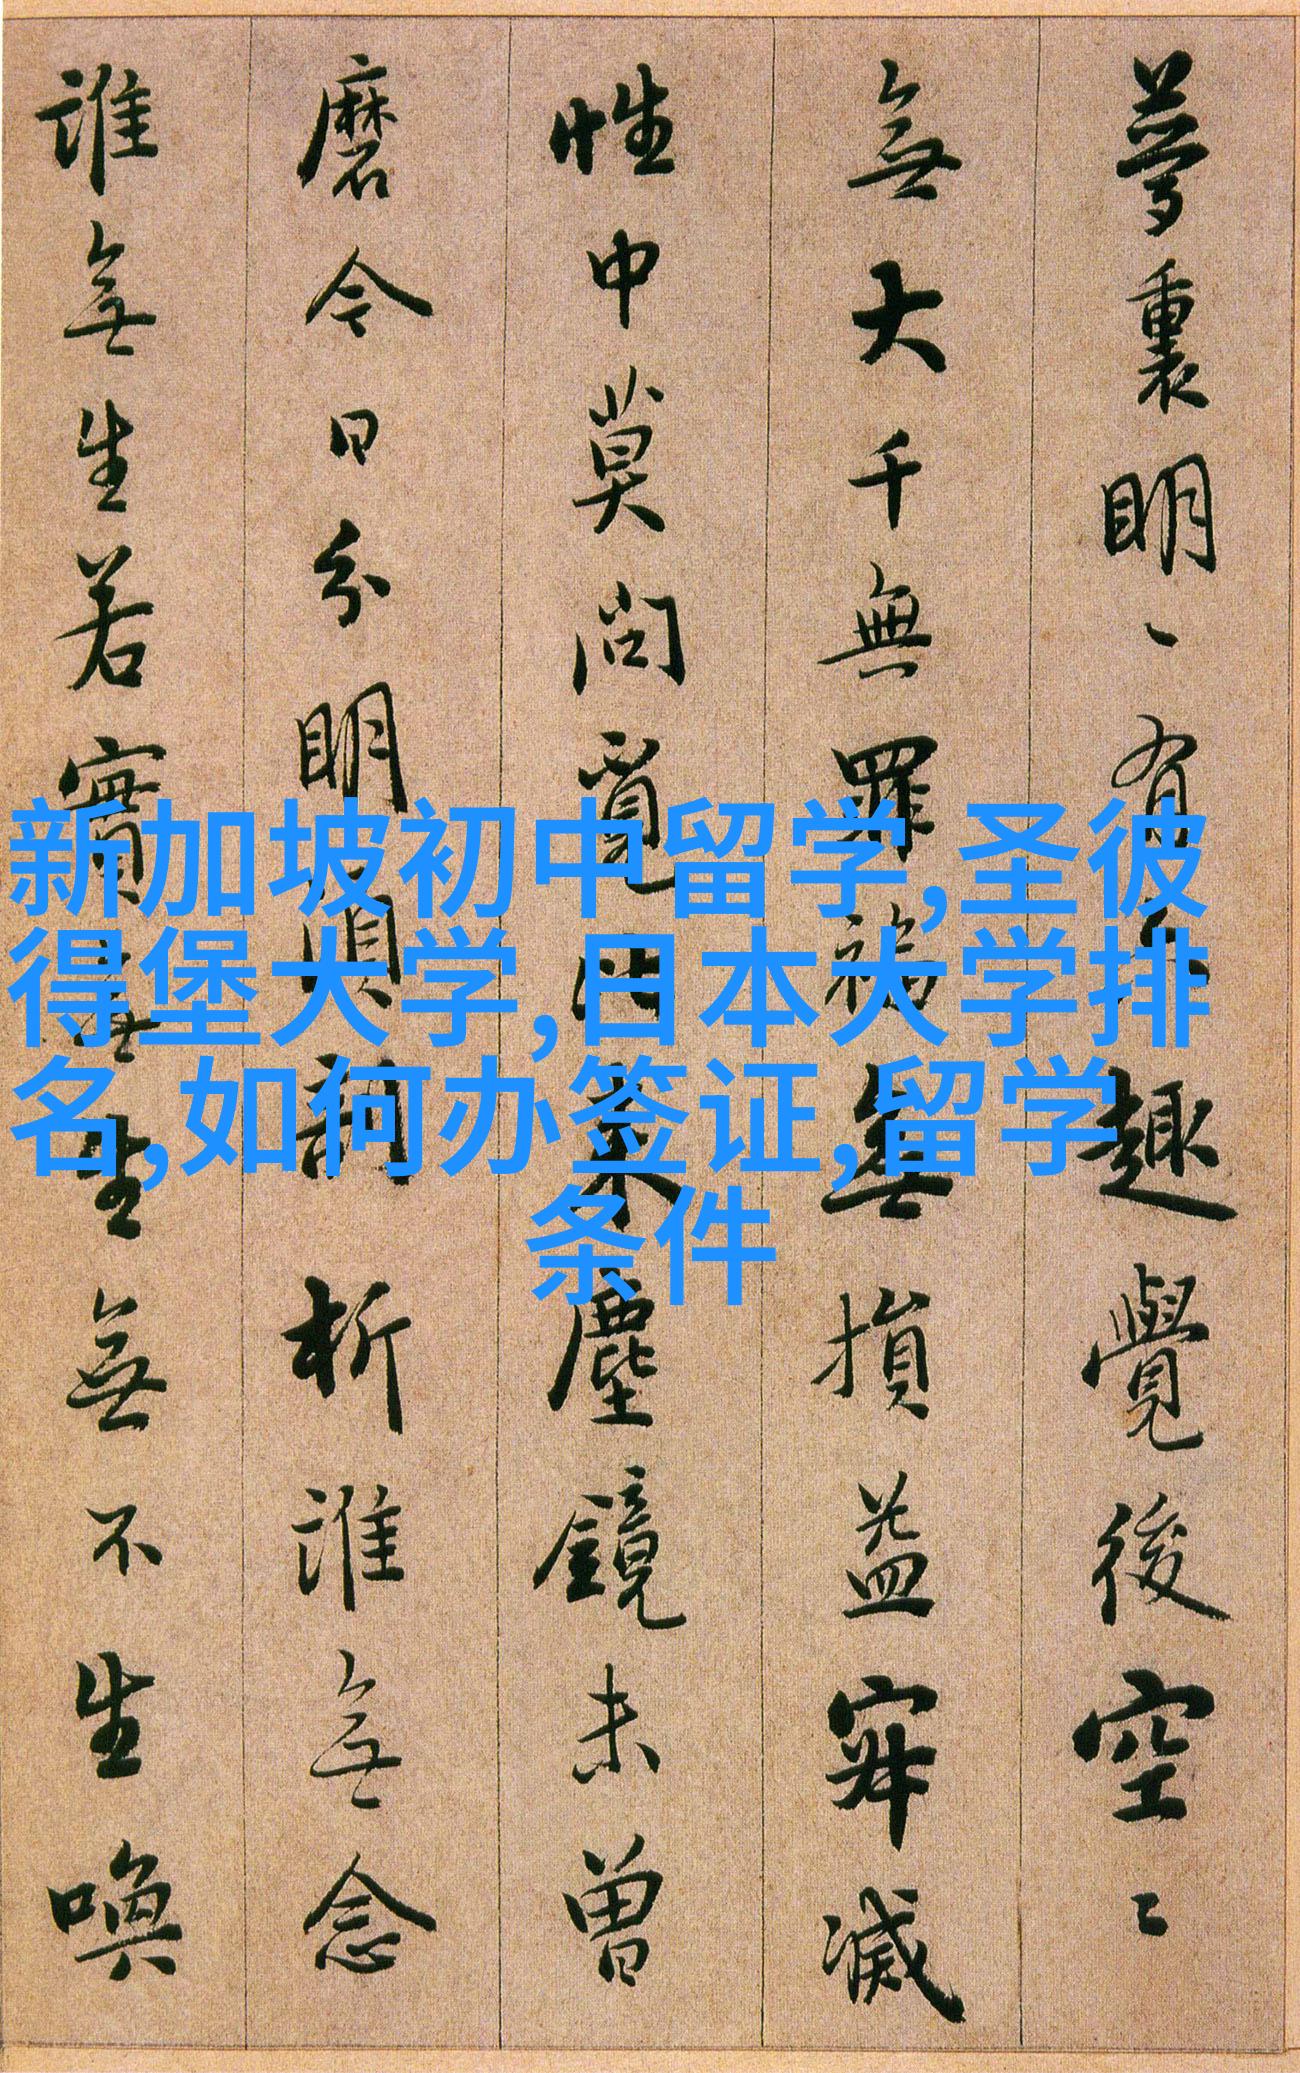 夢裏明〻有六趣覺後空〻
無大千無罪福無損益寂滅
性中莫問覓比來塵鏡未曾
磨今日分明須剖析誰無念
誰無生若實無生無不生喚
新加坡初中留学,圣彼
得堡大学,日本大学排
名,如何办签证,留学
条件